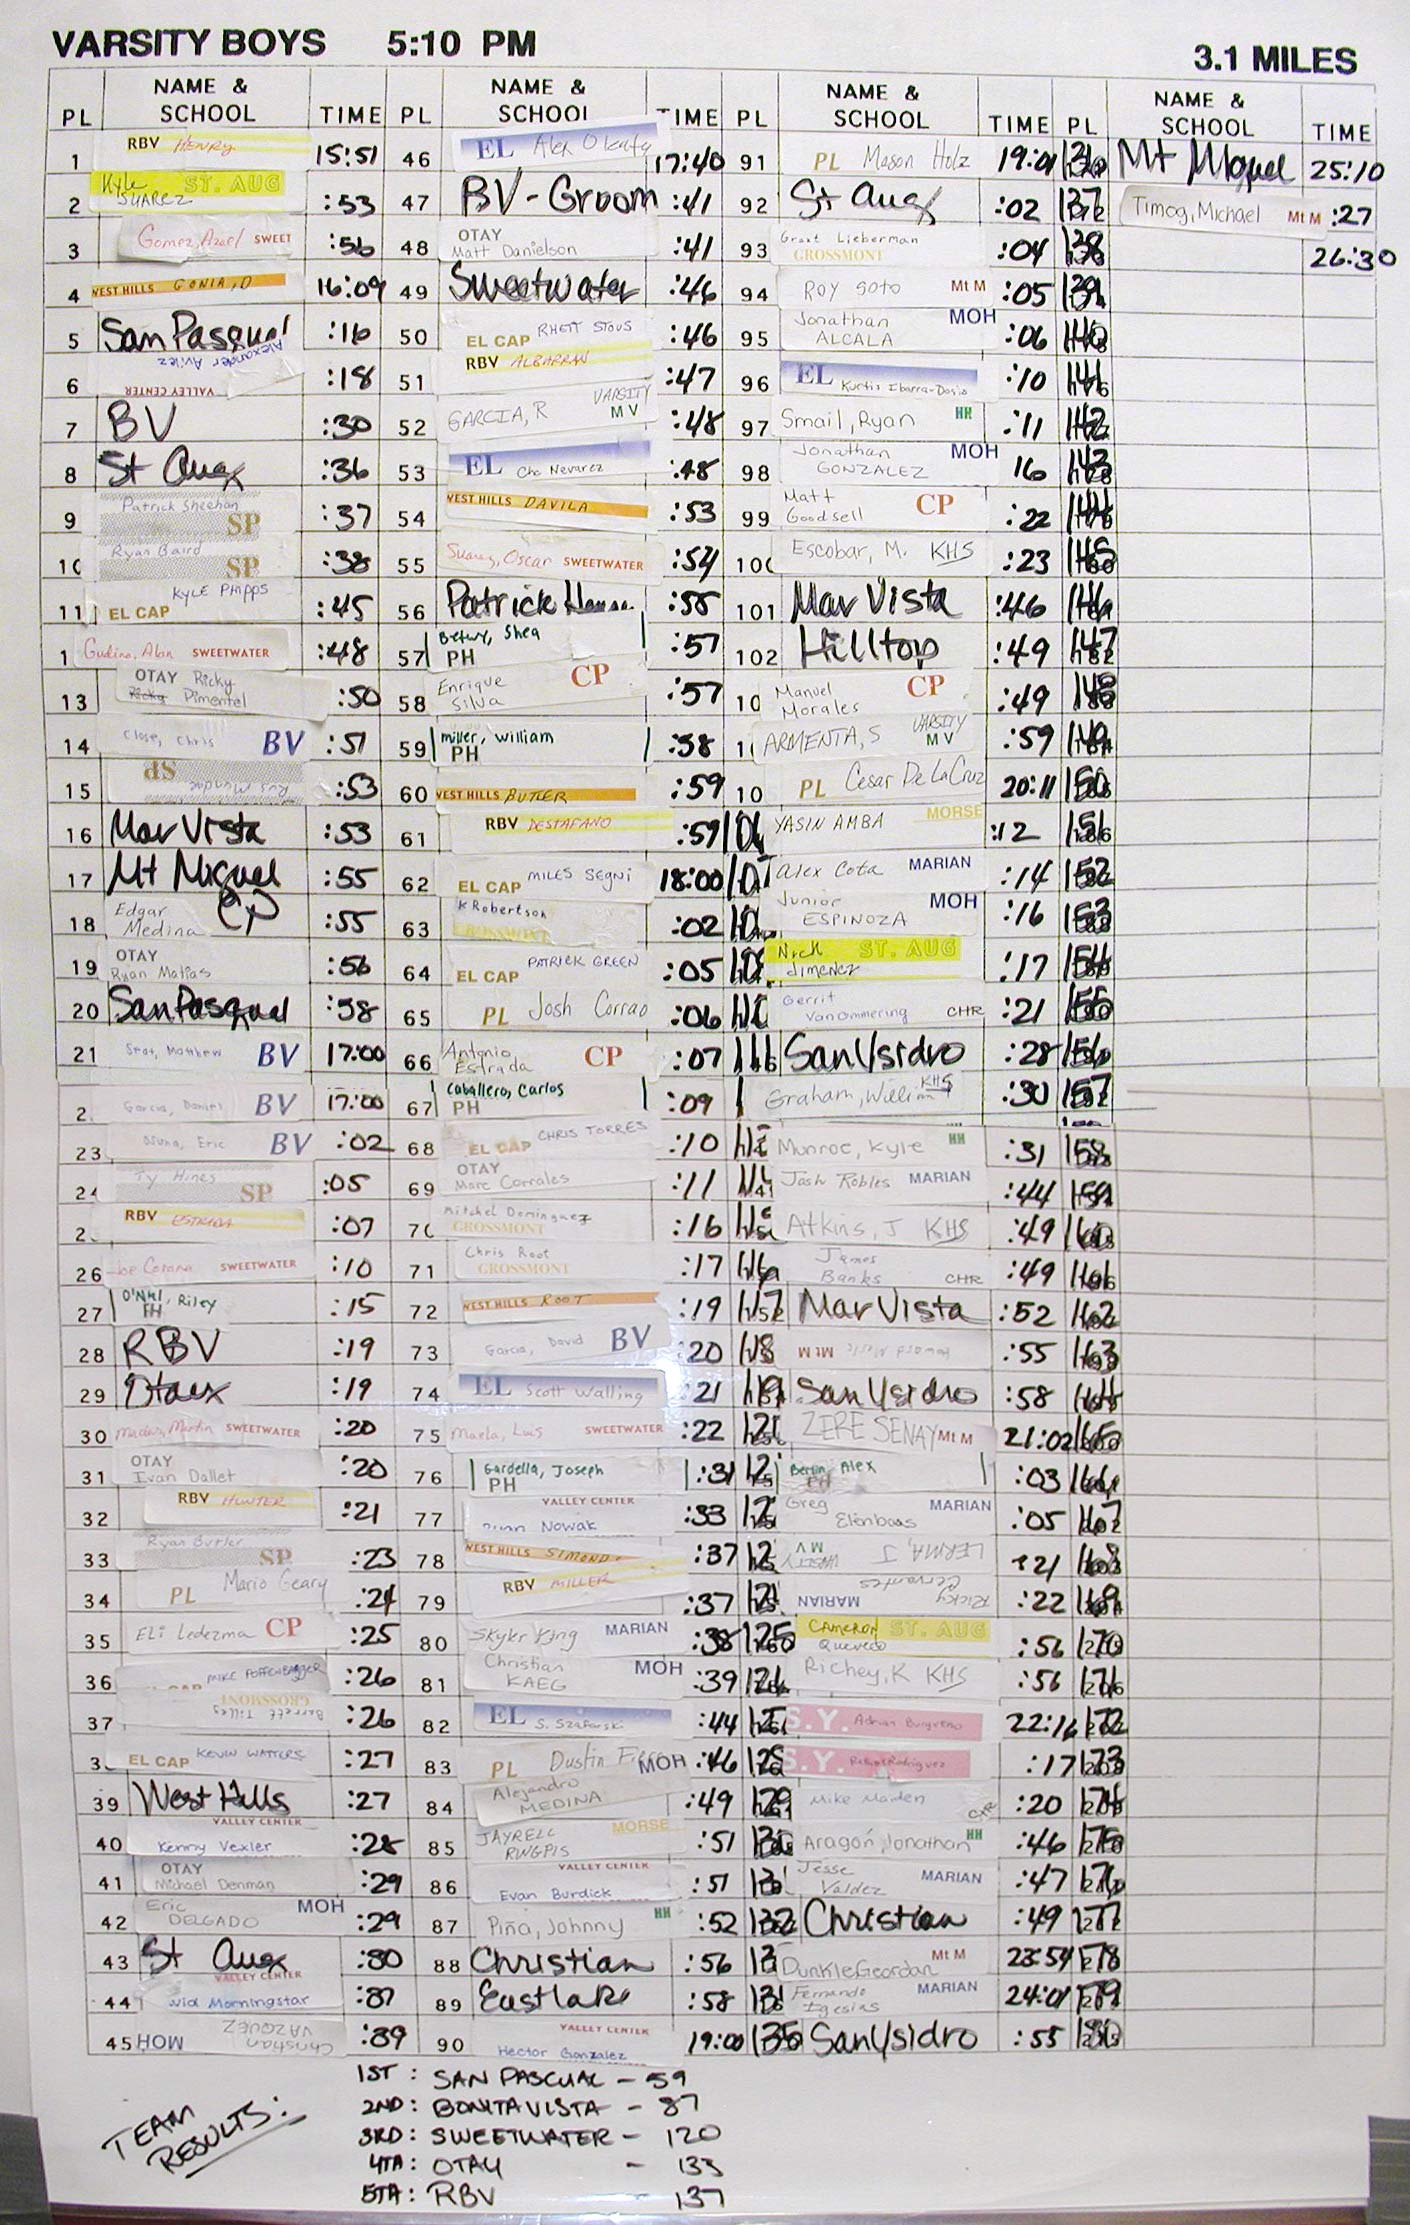 VARSITY BOYS 5:10 PM
3.1 MILES
PL NAME & SCHOOL TIME PL NAME & SCHOOL TIME PL NAME & SCHOOL TIME PL NAME & SCHOOL TIME
1 RBV HENRY 15:51
2 Kyle SUAREZ ST. AUG :53
3 Gomez, Azael SWEET :56
4 WEST HILLS GONIA, D 16:09
5 San Pasqual :16
6 Alexander Avilez VALLEY CENTER :18
7 BV :30
8 St Aug :36
9 Patrick Sheehan SP :37
10 Ryan Baird SP :38
11 KYLE PHIPPS EL CAP :45
1 Gudino, Alan SWEETWATER :48
13 OTAY Ricky Pimentel :50
14 Close, Chris BV :51
15 SP :53
16 Mar Vista :53
17 Mt Miguel :55
18 Edgar Medina CP :55
19 OTAY Ryan Matias :56
20 San Pasqual :58
21 Matthew BV 17:00
2 Garcia, Daniel BV 17:00
23 Osuna, Eric BV :02
24 Ty Hines SP :05
2 RBV ESTRADA :07
26 Joe Corona SWEETWATER :10
27 O'Neil, Riley PH :15
28 RBV :19
29 Otay :19
30 Martin SWEETWATER :20
31 OTAY Ivan Dallet :20
32 RBV HUNTER :21
33 Ryan Butler SP :23
34 PL Mario Geary :24
35 ELi Ledezma CP :25
36 MIKE POFFENBARGER CAP :26
37 Barrett Tilles GROSSMONT :26
3 EL CAP KEVIN WATTERS :27
39 West Hills :27
40 VALLEY CENTER Kenny Vexler :28
41 OTAY Michael Denman :29
42 Eric DELGADO MOH :29
43 St Aug :30
44 VALLEY CENTER Morningstar :37
45 MOH Christian VAZQUEZ :39
46 EL Alex 17:40
47 BV-Groom :41
48 OTAY Matt Danielson :41
49 Sweetwater :46
50 EL CAP RHETT STOUS :46
51 RBV ALBARRAN :47
52 GARCIA, R VARSITY MV :48
53 EL Che Nevarez :48
54 WEST HILLS DAVILA :53
55 Suarez, Oscar SWEETWATER :54
56 Patrick :55
57 Betwy, Shea PH :57
58 Enrique Silva CP :57
59 miller, william PH :58
60 WEST HILLS BUTLER :59
61 RBV DESTAFANO :59
62 EL CAP MILES SEGNI 18:00
63 K Robertson GROSSMONT :02
64 EL CAP PATRICK GREEN :05
65 PL Josh Corrao :06
66 Antonio Estrada CP :07
67 Caballero, Carlos PH :09
68 EL CAP CHRIS TORRES :10
69 OTAY Marc Corrales :11
70 Mitchel Dominguez GROSSMONT :16
71 Chris Root GROSSMONT :17
72 WEST HILLS ROOT :19
73 Garcia, David BV :20
74 EL Scott Walling :21
75 Maela, Luis SWEETWATER :22
76 Gardella, Joseph PH :31
77 VALLEY CENTER Nowak :33
78 WEST HILLS SIMOND :37
79 RBV MILLER :37
80 Skyler King MARIAN :38
81 Christian KAEG MOH :39
82 EL S. Szafarski :44
83 PL Dustin :46
84 Alejandro MEDINA MOH :49
85 JAYRELL MORSE :51
86 VALLEY CENTER Evan Burdick :51
87 Piña, Johnny HH :52
88 Christian :56
89 Eastlake :58
90 VALLEY CENTER Hector Gonzalez 19:00
91 PL Mason Holz 19:01
92 St Aug :02
93 Grant Lieberman GROSSMONT :04
94 ROY SOTO Mt M :05
95 Jonathan ALCALA MOH :06
96 EL Kurtis Ibarra-Dosio :10
97 Smail, Ryan HH :11
98 Jonathan GONZALEZ MOH 16
99 Matt Goodsell CP :22
100 Escobar, M. KHS :23
101 Mar Vista :46
102 Hilltop :49
10 Manuel Morales CP :49
ARMENTA, S VARSITY MV :59
10 PL Cesar De La Cruz 20:11
106 YASIN AMBA MORSE :12
Alex Cota MARIAN :14
Junior ESPINOZA MOH :16
Nick Jimenez ST. AUG :17
Gerrit VanOmmering CHR :21
San Ysidro :28
Graham, William KHS :30
Munroe, Kyle HH :31
Josh Robles MARIAN :44
Atkins, J KHS :49
116 James Banks CHR :49
117 Mar Vista :52
118 Howard Mt M :55
119 San Ysidro :58
ZERE SENAY Mt M 21:02
Berlin Alex PH :03
Greg Elenbaas MARIAN :05
LERMA, J VARSITY MV :21
Ricky Cervantes MARIAN :22
125 CAMERON Quevedo ST. AUG :56
126 Richey, K KHS :56
S.Y. Adrian 22:16
S.Y. Rodriguez :17
129 Mike Maiden CHR :20
Aragón, Jonathan HH :46
Jesse Valdez MARIAN :47
132 Christian :49
Dunkle, Geordan Mt M 23:54
Fernando Iglesias MARIAN 24:01
135 San Ysidro :55
136 Mt Miguel 25:10
137 Timog, Michael Mt M :27
138 26:30
139
140
141
142
143
144
145
146
147
148
149
150
151
152
153
154
155
156
157
158
159
160
161
162
163
164
165
166
167
168
169
170
171
172
173
174
175
176
177
178
179
180
TEAM RESULTS:
1ST: SAN PASCUAL - 59
2ND: BONITA VISTA - 87
3RD: SWEETWATER - 120
4TH: OTAY - 133
5TH: RBV - 137